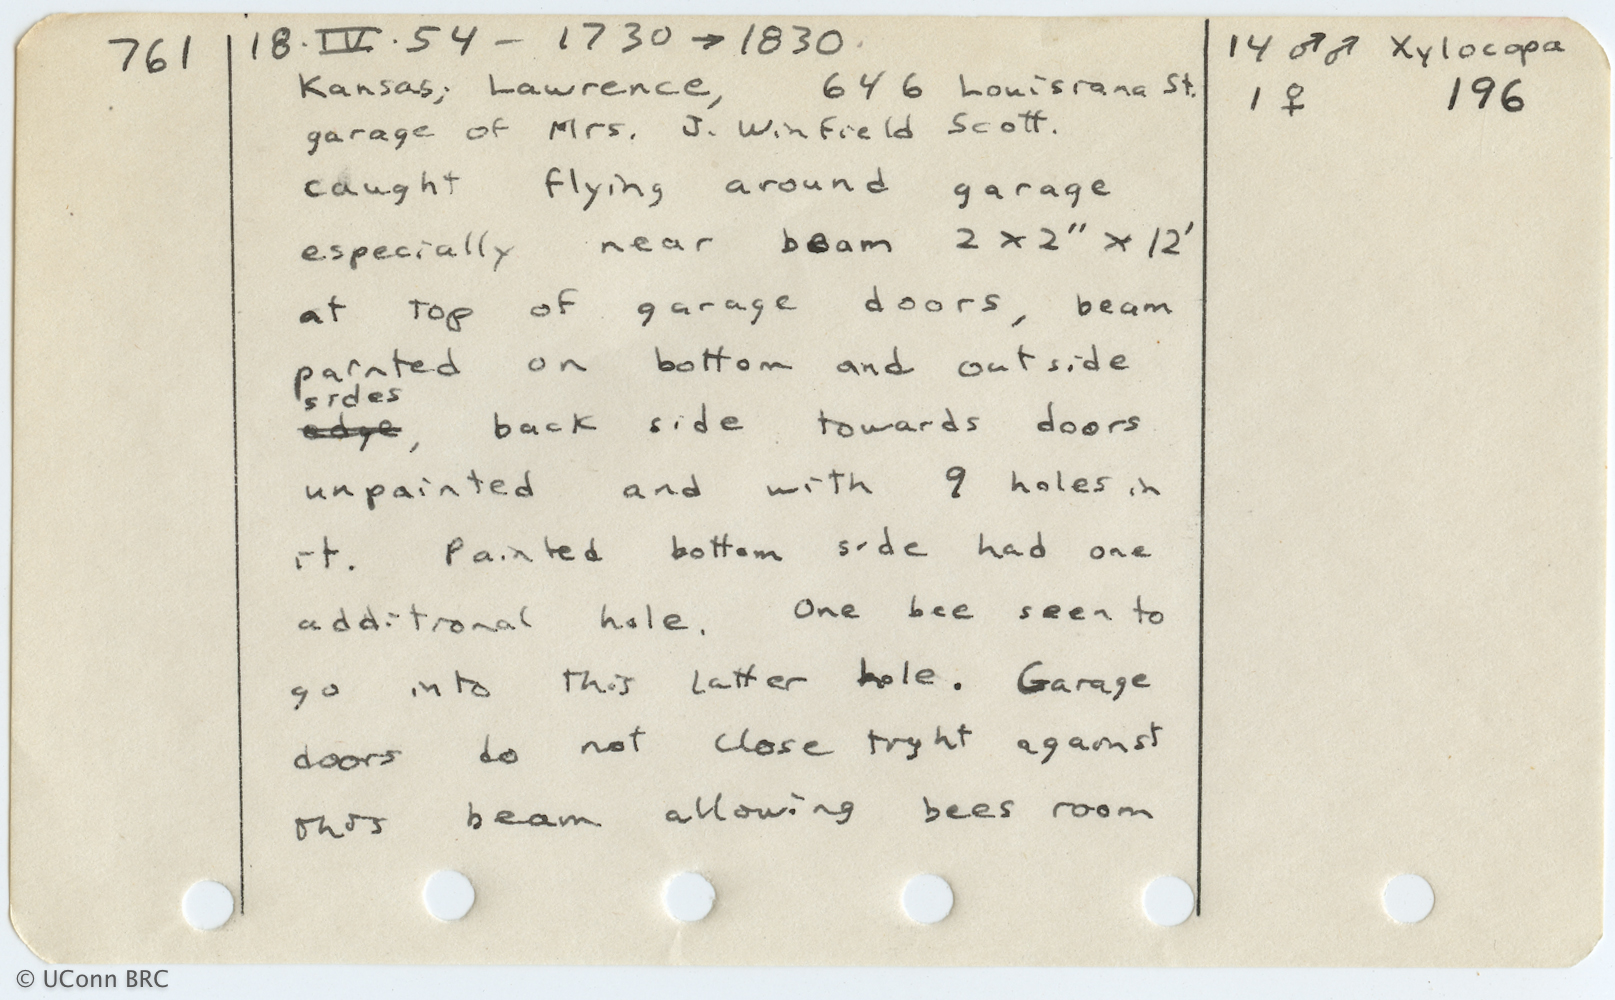 761
18·IV·54 – 1730 → 1830.
Kansas; Lawrence, 646 Louisiana St.
garage of Mrs. J. Winfield Scott.
caught flying around garage
especially near beam 2 x 2" x 12'
at top of garage doors, beam
painted on bottom and outside
sides
edge, back side towards doors
unpainted and with 9 holes in
it. Painted bottom side had one
additional hole. One bee seen to
go into this latter hole. Garage
doors do not close tight against
this beam allowing bees room
14 ♂♂ Xylocopa
1 ♀ 196
© UConn BRC